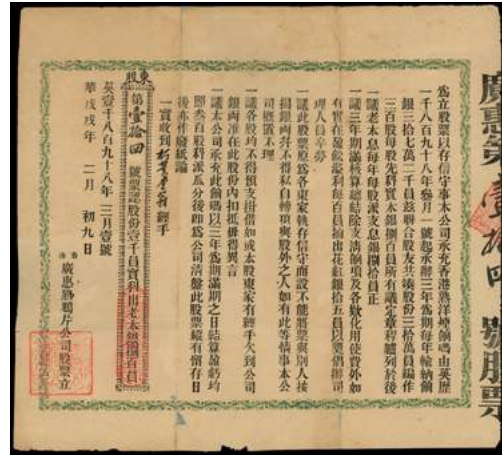 為立股票以存信守事本公司承充香港熟洋烟餉碼由英歷
一千八百九十八年叄月一號起承辦三年為期每年輸納餉
銀三拾七萬二千員茲聯合股友共湊股份三拾萬員編作
三百股每股先科實本銀捌百員所有議定章程臚列於後
一議老本息每年每股派支息銀捌拾員正
一議三年期滿核算總結除支清餉項及各欵化用使費外如
有實在盈餘溢利每百員抽出花紅銀拾五員以奬倡辦司
理人員辛勞
一議此股票原為各東家執存信守而設不能將票與別人按
揭銀両幷不得私自轉項與股外之人如有此等情事本公
司概置不理
一議各股均不得預支掛借如或本股東家有經手欠到公司
銀両准在此股份內扣抵毋得異言
一議本公司承充此餉碼以三年為期滿期之日結算盈虧均
照叁百股科派瓜分後即為公司清盤此股票縱有留存日
後亦作廢紙論
一實收到
經手
東股
第壹拾四號票認股份壹千員實科出老本銀捌百員
英壹千八百九十八年三月壹號
華戊戌年二月初九日
香港
廣惠熟鴉片公司股票立
廣惠
壹拾四號股票